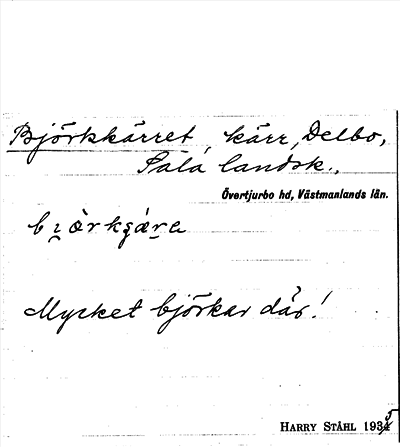 Björkkärret, kärr, Delbo,
Sala landsk.,
Övertjurbo hd, Västmanlands län.
Mycket björkar där!
HARRY STÅHL 1935